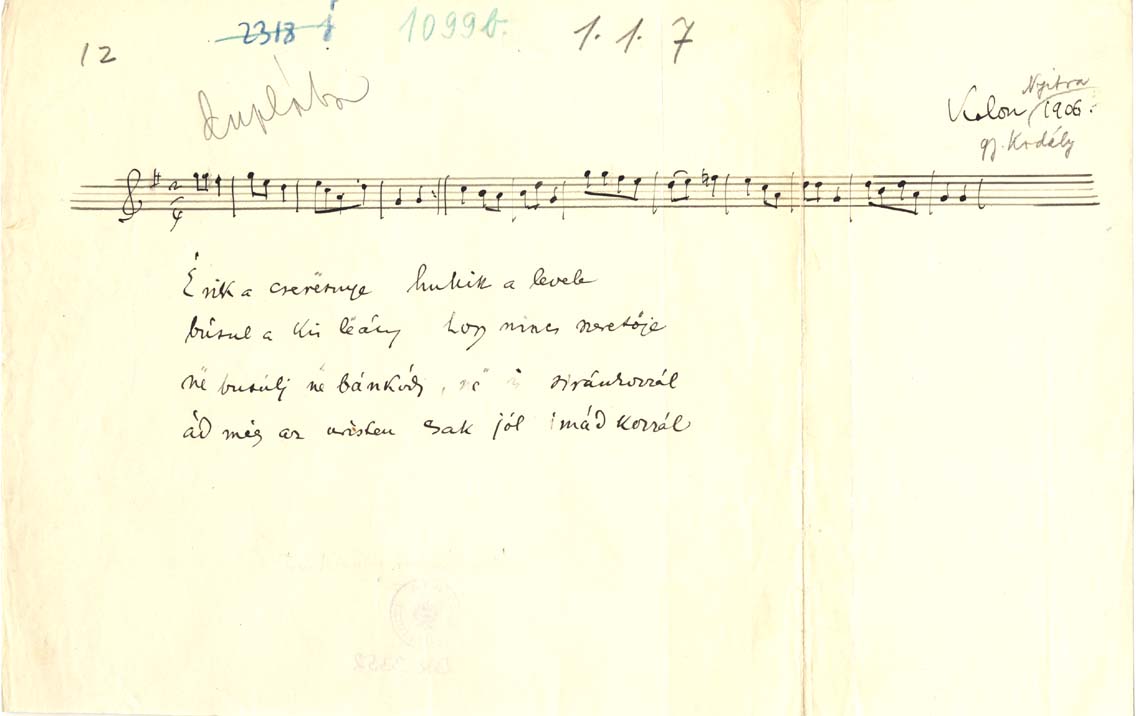 12 2318 i 1099b. 1. 1. 7
duplába
Nyitra
Kolon, 1906.
gy. Kodály
Érik a cserësnye hullik a levele
búsul a kis lëány hogy nincs szeretője
në busúlj në bánkódj, së is siránkozzál
ád még az uristen csak jól imádkozzál